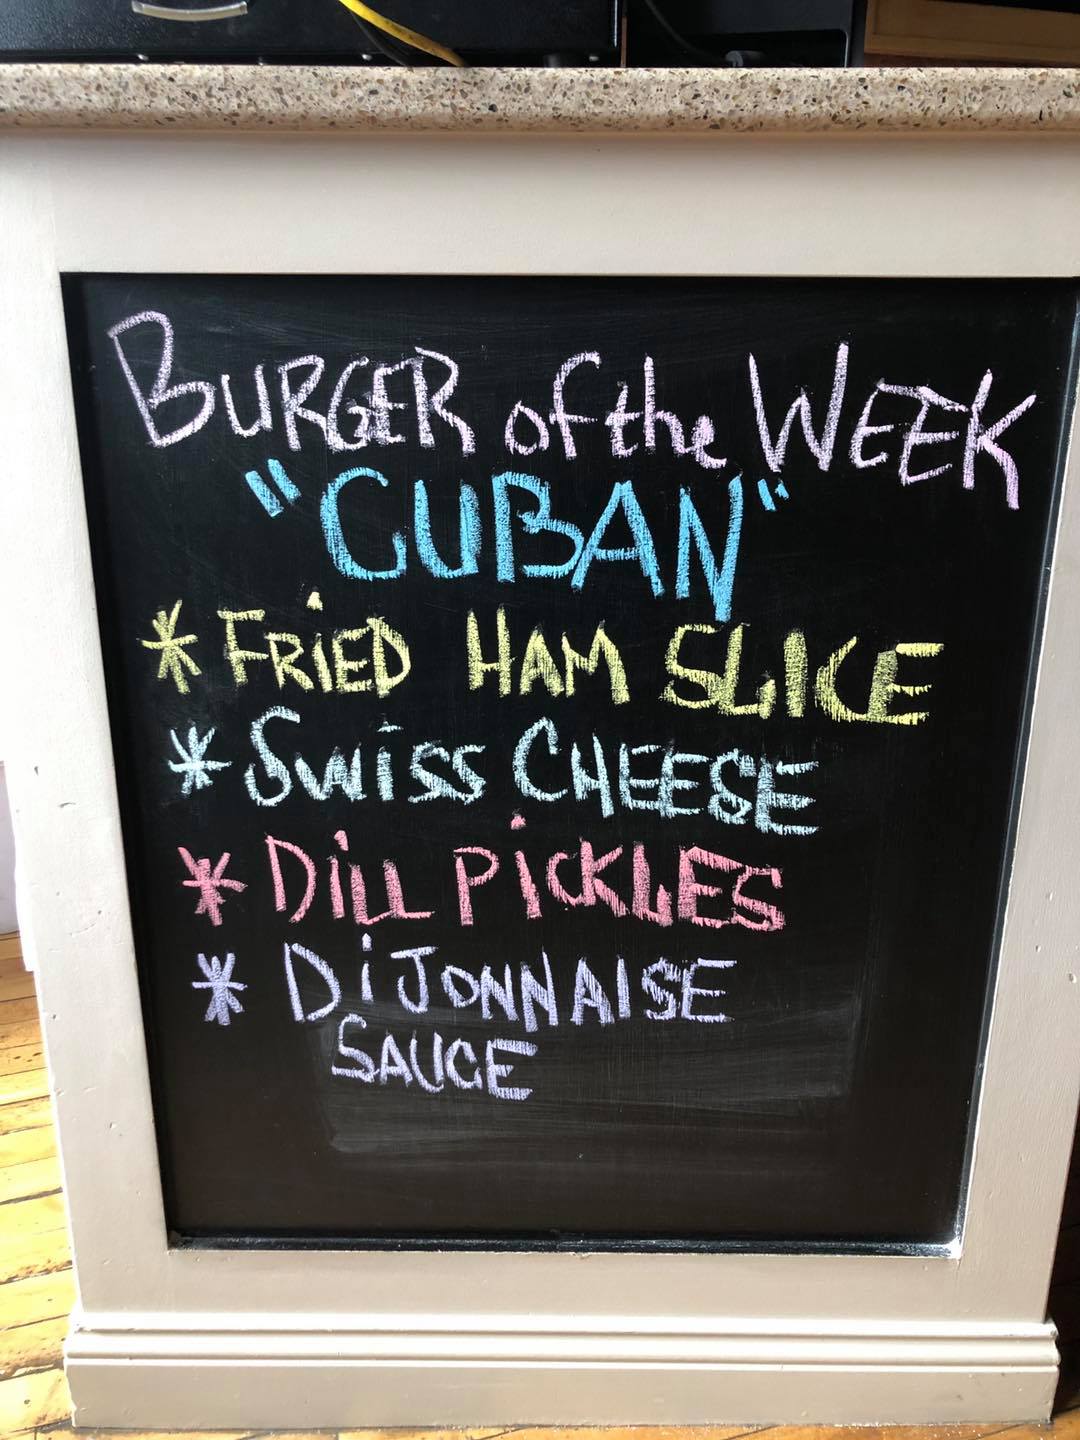 BURGER of the WEEK
"CUBAN"
* FRiED HAM SLICE
* SWiSS CHEESE
* DiLL PiCKLES
* DiJONNAISE
SAUCE